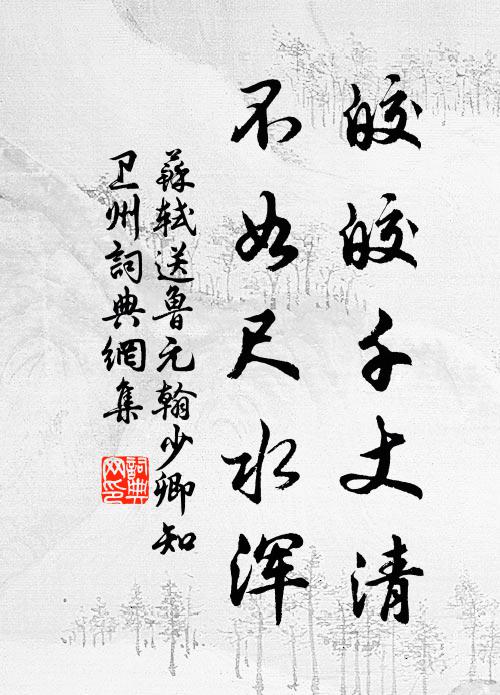 皎皎千丈清
不如尺水浑
蘇轼送鲁元翰少卿知
卫州詞典網集
詞典网印